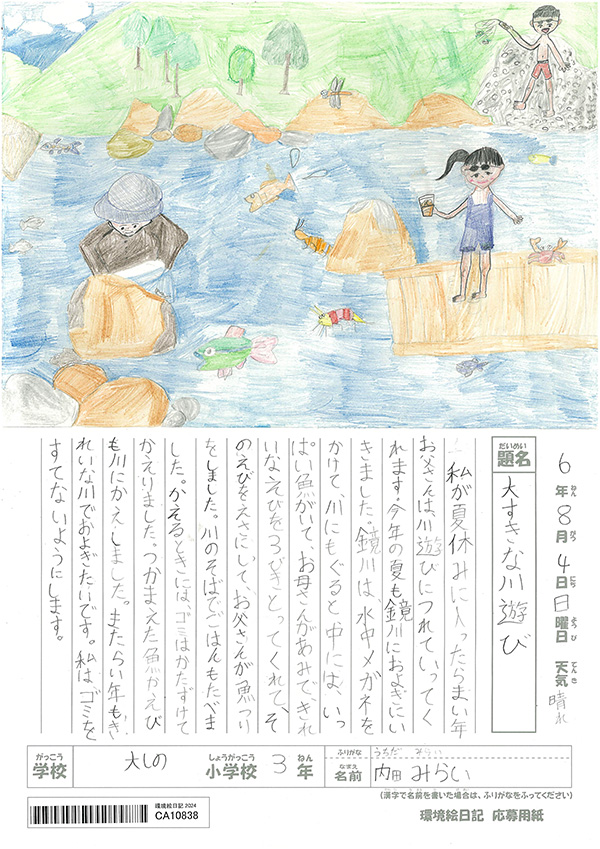 6年8月4日日曜日 天気晴れ
ねん がつ にち ようび てんき
だいめい
題名
大すきな川遊び
私が夏休みに入ったらまい年
お父さんは、川遊びにつれていってく
れます。今年の夏も鏡川におよぎにい
きました。鏡川は、水中メガネを
かけて、川にもぐると中には、いっ
ぱい魚がいて、お母さんがあみできれ
いなえびを3びきとってくれて、そ
のえびをえさにして、お父さんが魚つり
をしました。川のそばでごはんもたべま
した。かえるときには、ゴミはかたずけて
かえりました。つかまえた魚かえび
も川にかえしました。またらい年もき
れいな川でおよぎたいです。私は、ゴミを
すてないようにします。
がっこう
学校
大しの
しょうがっこう
小学校
3
ねん
年
ふりがな
うちだ みらい
なまえ
名前
内田 みらい
(漢字で名前を書いた場合は、ふりがなをふってください)
環境絵日記 2024
CA10838
環境絵日記 応募用紙